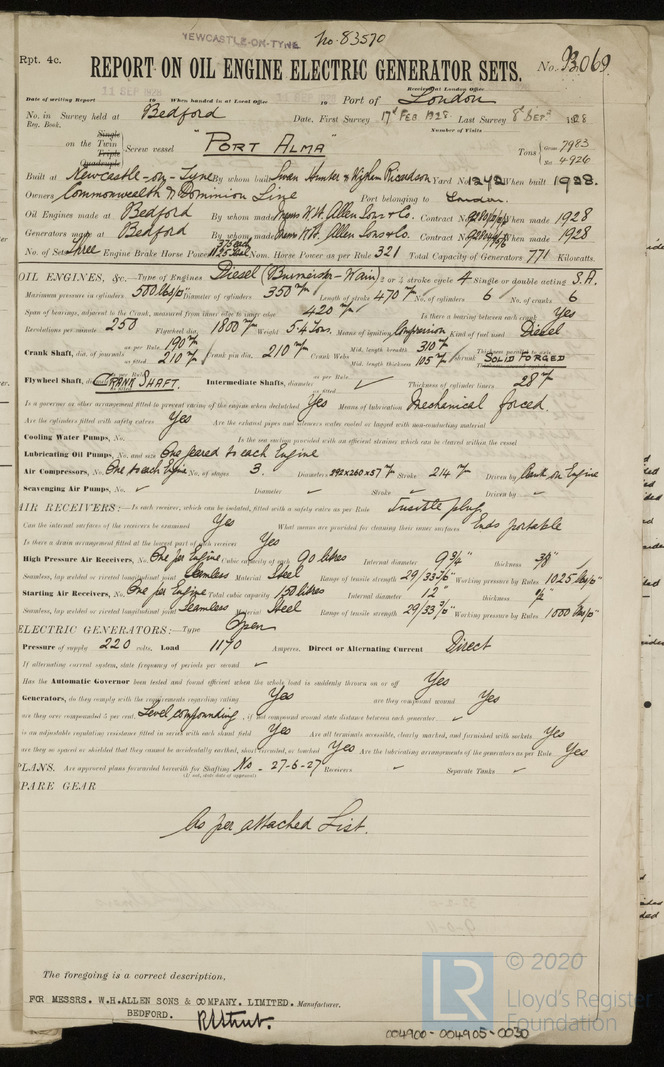 NEWCASTLE-ON-TYNE No. 83570
Rpt. 4c.
REPORT ON OIL ENGINE ELECTRIC GENERATOR SETS. No. 93069
11 SEP 1928
Received at London Office
Date of writing Report 19 When handed in at Local Office 19 Port of London
No. in Survey held at Bedford Date, First Survey 17th FEB 1928 Last Survey 8th SEPt 1928
Reg. Book. Number of Visits
Single
on the Twin
Triple
Quadruple
Screw vessel "PORT ALMA" Tons Gross 7983
Net 4926
Built at Newcastle-on-Tyne By whom built Swan Hunter & Wigham Richardson Yard No. 1342 When built 1928.
Owners Commonwealth & Dominion Line Port belonging to London.
Oil Engines made at Bedford By whom made Messrs W.H. Allen Sons & Co. Contract No. When made 1928
Generators made at Bedford By whom made Messrs W.H. Allen Sons & Co. Contract No. When made 1928
No. of Sets Three Engine Brake Horse Power 375 each 1125 Total Nom. Horse Power as per Rule 321 Total Capacity of Generators 771 Kilowatts.
OIL ENGINES, &c.—Type of Engines Diesel (Burmeister-Wain) 2 or 4 stroke cycle 4 Single or double acting S.A.
Maximum pressure in cylinders 500 lbs/□" Diameter of cylinders 350 m/m Length of stroke 470 m/m No. of cylinders 6 No. of cranks 6
Span of bearings, adjacent to the Crank, measured from inner edge to inner edge 420 m/m Is there a bearing between each crank Yes
Revolutions per minute 250 Flywheel dia. 1800 m/m Weight 5.4 Tons. Means of ignition Compression Kind of fuel used Diesel
Crank Shaft, dia. of journals as per Rule 190 m/m as fitted 210 m/m Crank pin dia. 210 m/m Crank Webs Mid. length breadth 310 m/m Mid. length thickness 105 m/m shrunk Thickness parallel to axis SOLID FORGED
Flywheel Shaft, diameter as per Rule CRANK SHAFT. Intermediate Shafts, diameter as per Rule as fitted ✓ Thickness of cylinder liners 28 m/m
Is a governor or other arrangement fitted to prevent racing of the engine when declutched Yes Means of lubrication Mechanical forced.
Are the cylinders fitted with safety valves Yes Are the exhaust pipes and silencers water cooled or lagged with non-conducting material
Cooling Water Pumps, No. Is the sea suction provided with an efficient strainer which can be cleared within the vessel
Lubricating Oil Pumps, No. and size One geared to each Engine
Air Compressors, No. One to each Engine No. of stages 3. Diameters 292x260x57 m/m Stroke 214 m/m Driven by Crank on Engine
Scavenging Air Pumps, No. ✓ Diameter ✓ Stroke ✓ Driven by ✓
AIR RECEIVERS:—Is each receiver, which can be isolated, fitted with a safety valve as per Rule Fusible plug
Can the internal surfaces of the receivers be examined Yes What means are provided for cleaning their inner surfaces Ends portable
Is there a drain arrangement fitted at the lowest part of each receiver Yes
High Pressure Air Receivers, No. One per Engine Cubic capacity of each 90 litres Internal diameter 9 3/4" thickness 3/8"
Seamless, lap welded or riveted longitudinal joint Seamless Material Steel Range of tensile strength 29/33 T/□" Working pressure by Rules 1025 lbs/□"
Starting Air Receivers, No. One per Engine Total cubic capacity 150 litres Internal diameter 12" thickness 1/2"
Seamless, lap welded or riveted longitudinal joint Seamless Material Steel Range of tensile strength 29/33 T/□" Working pressure by Rules 1000 lbs/□"
ELECTRIC GENERATORS:—Type Open
Pressure of supply 220 volts. Load 1170 Amperes. Direct or Alternating Current Direct
If alternating current system, state frequency of periods per second ✓
Has the Automatic Governor been tested and found efficient when the whole load is suddenly thrown on or off Yes
Generators, do they comply with the requirements regarding rating Yes are they compound wound Yes
are they over compounded 5 per cent. Level compounding, if not compound wound state distance between each generator ✓
is an adjustable regulating resistance fitted in series with each shunt field Yes Are all terminals accessible, clearly marked, and furnished with sockets Yes
are they so spaced or shielded that they cannot be accidentally earthed, short circuited, or touched Yes Are the lubricating arrangements of the generators as per Rule Yes
PLANS. Are approved plans forwarded herewith for Shafting No - 27-6-27 Receivers ✓ Separate Tanks ✓
(If not, state date of approval)
SPARE GEAR
As per attached List.
The foregoing is a correct description,
FOR MESSRS. W.H.ALLEN SONS & COMPANY. LIMITED. Manufacturer.
BEDFORD.
LR © 2020
Lloyd's Register
Foundation
004900-004905-0030